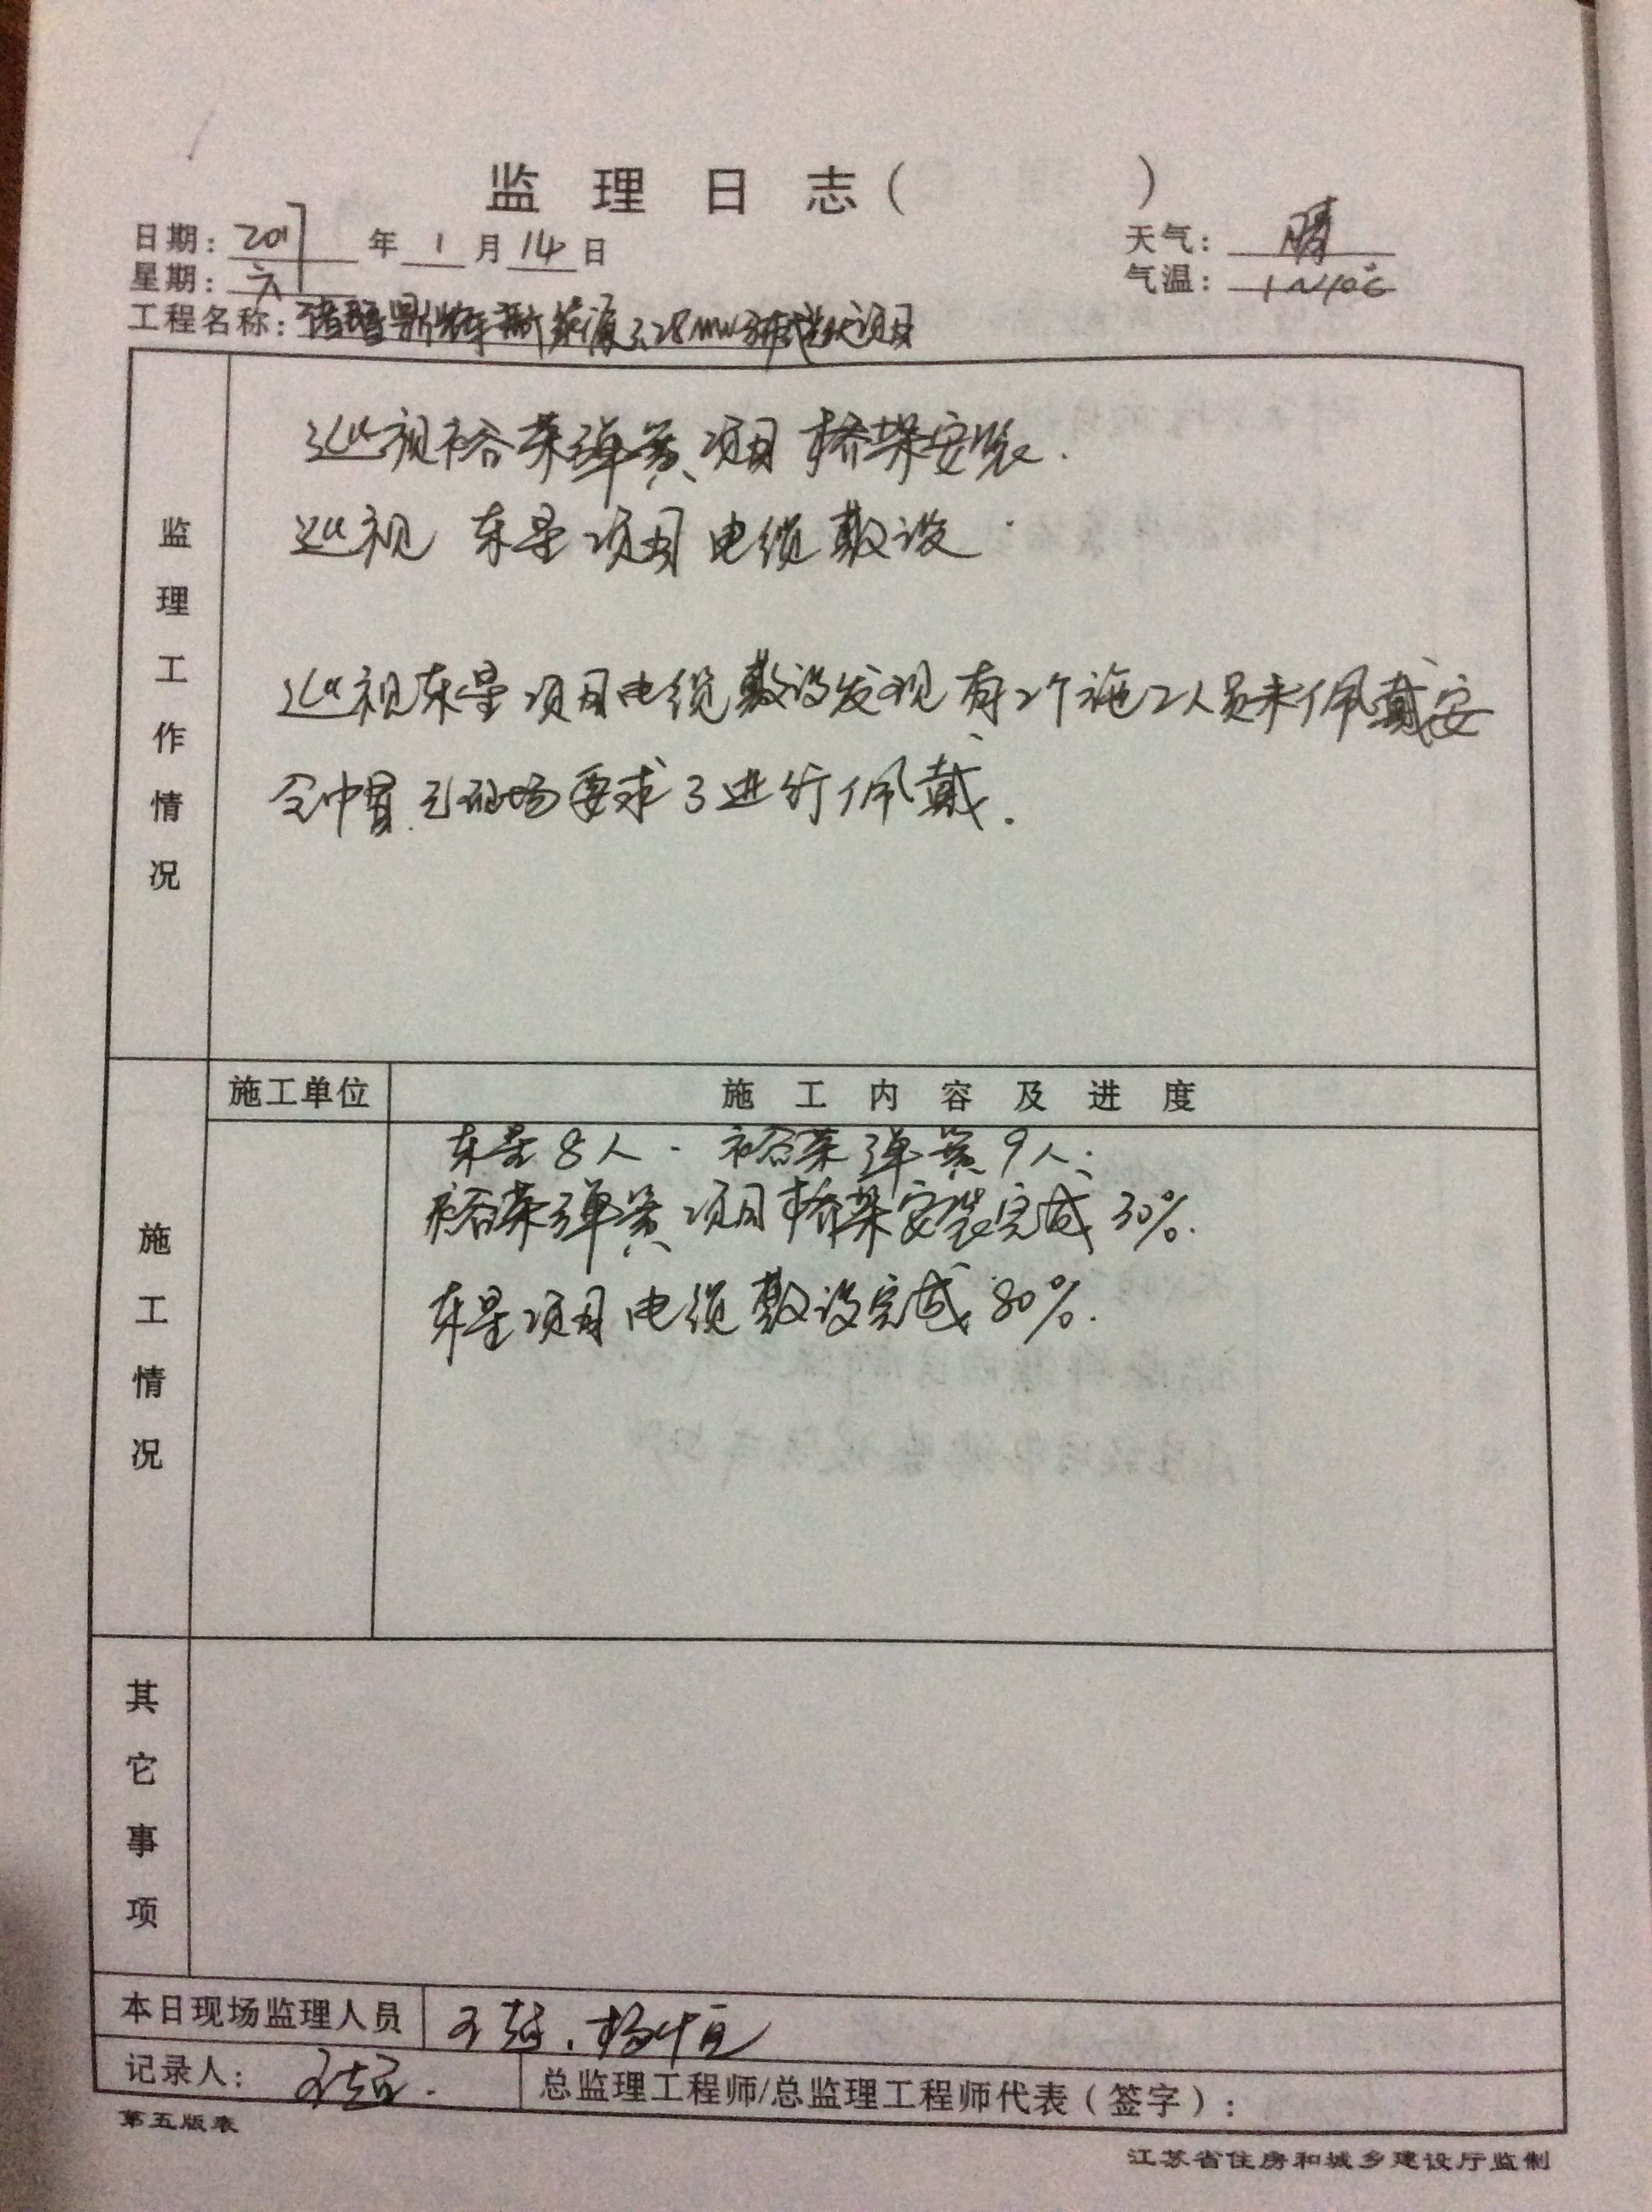 监理日志（ ）
日期：2017年1月14日 天气：晴
星期：六 气温：1~10℃
工程名称：诸暨鼎特新能源3.28MW分布式光伏项目
监理工作情况
巡视裕荣弹簧项目桥架安装.
巡视 东星项目电缆敷设.
巡视东星项目电缆敷设发现有2个施工人员未佩戴安
全帽.已现场要求了进行佩戴.
施工单位 施工内容及进度
施工情况
东星8人. 裕荣弹簧9人;
裕荣弹簧项目桥架安装完成30%.
东星项目电缆敷设完成80%.
其它事项
本日现场监理人员 王超.杨恒
记录人：王超. 总监理工程师/总监理工程师代表（签字）：
第五版表
江苏省住房和城乡建设厅监制